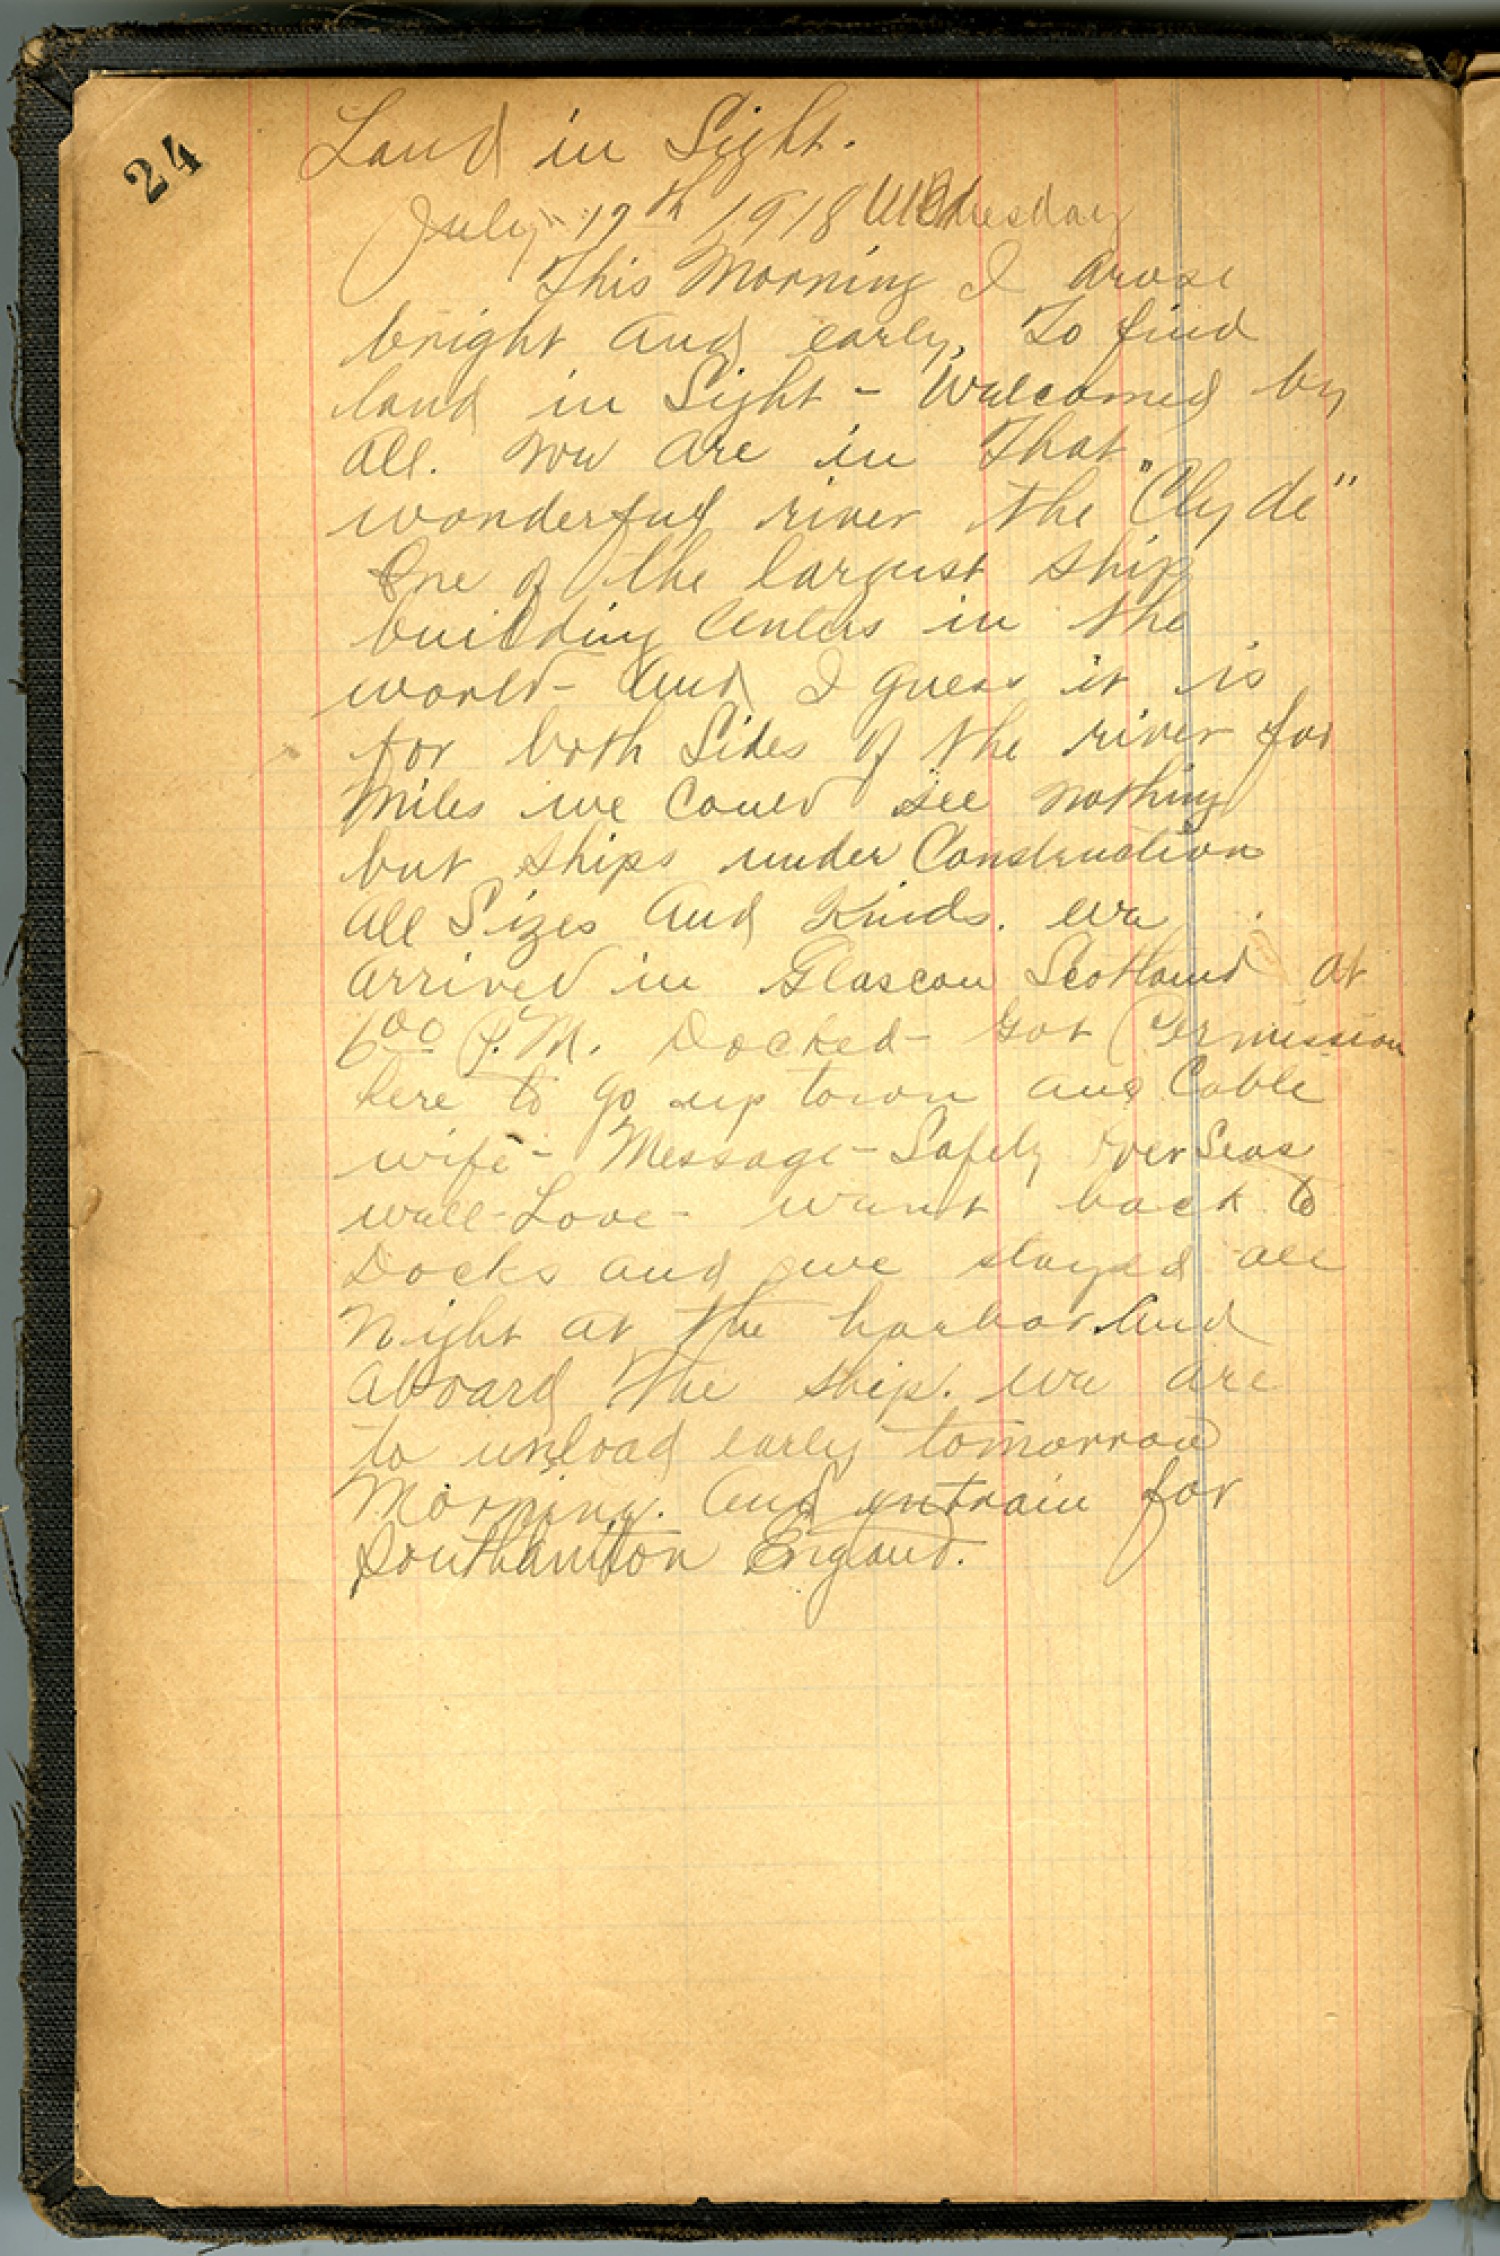 24
Land in Sight.
July 17th 1918 Wednesday
This Morning I arose
bright and early, To find
land in Sight - Welcomed by
all. now are in That
wonderful river the "Clyde"
One of the largest ship
building Centers in the
world - And I guess it is
for both Sides of the river for
Miles we Could see nothing
but ships under Construction
all Sizes And Kinds. We
arrived in Glascow Scotland at
600 P.M. Docked - Got Permission
here to go up town and Cable
wife - Message - Safely Over Seas
well - Love - went back to
Docks and we stayed all
Night at the harbor And
aboard The ship. We are
to unload early tomorrow
Morning. And entrain for
England.